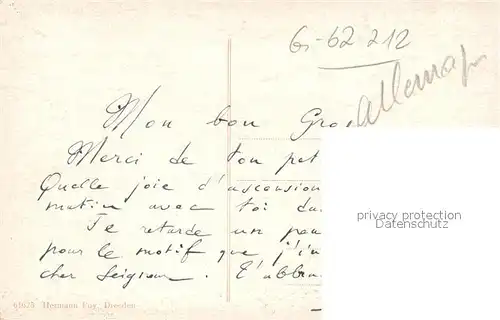 6-62 212
Allemag
Mon bon Gros
Merci de ton pet
Quelle joie d'ascension
matin avec toi du
Je retarde un peu
pour le motif que j'in
cher Seigneur. t'abbra
privacy protection
Datenschutz
61623 Hermann Fuy, Dresden